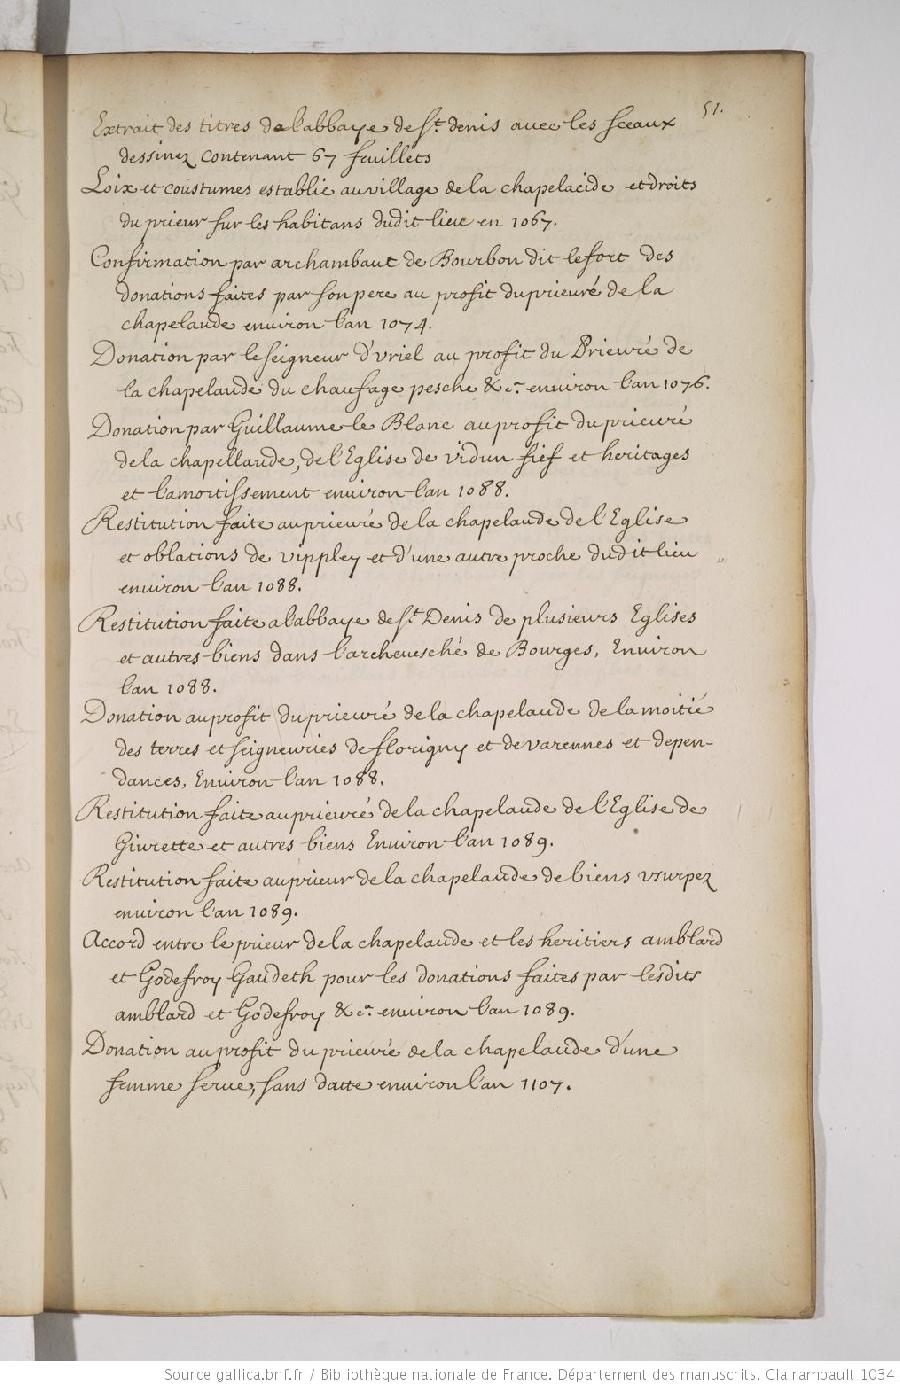 51.
Extrait des titres de l'abbaye de St. denis auec les sceaux
dessinez contenant 67 feuillets
Loix et coustumes establie au village de la chapelacide et droits
du prieur sur les habitans dudit lieu en 1067.
Confirmation par archambaut de Bourbon dit le fort des
donations faites par son pere au profit du prieuré de la
chapelaude enuiron l'an 1074.
Donation par le seigneur d'vriel au profit du Prieuré de
la chapelaude du chaufage pesche &c.ᵃ enuiron l'an 1076.
Donation par Guillaume le Blanc au profit du prieuré
de la chapellaude, de l'Eglise de vidun fief et heritages
et l'amortissement enuiron l'an 1088.
Restitution faite au prieuré de la chapelaude de l'Eglise
et oblations de vippley et d'une autre proche dudit lieu
enuiron l'an 1088.
Restitution faite a l'abbaye de St. Denis de plusieurs Eglises
et autres biens dans l'archeuesché de Bourges, Enuiron
l'an 1088.
Donation au profit du prieuré de la chapelaude de la moitié
des terres et seigneuries de florigny et de varennes et depen-
dances, Enuiron l'an 1088.
Restitution faite au prieuré de la chapelaude de l'Eglise de
Giurette et autres biens Enuiron l'an 1089.
Restitution faite au prieur de la chapelaude de biens vsurpez
enuiron l'an 1089.
Accord entre le prieur de la chapelaude et les heritiers amblard
et Godefroy Gaudeth pour les donations faites par lesdits
amblard et Godefroy &c.ᵃ enuiron l'an 1089.
Donation au profit du prieuré de la chapelaude d'une
femme serue, sans datte enuiron l'an 1107.
Source gallica.bnf.fr / Bibliothèque nationale de France. Département des manuscrits. Clairambault 1034